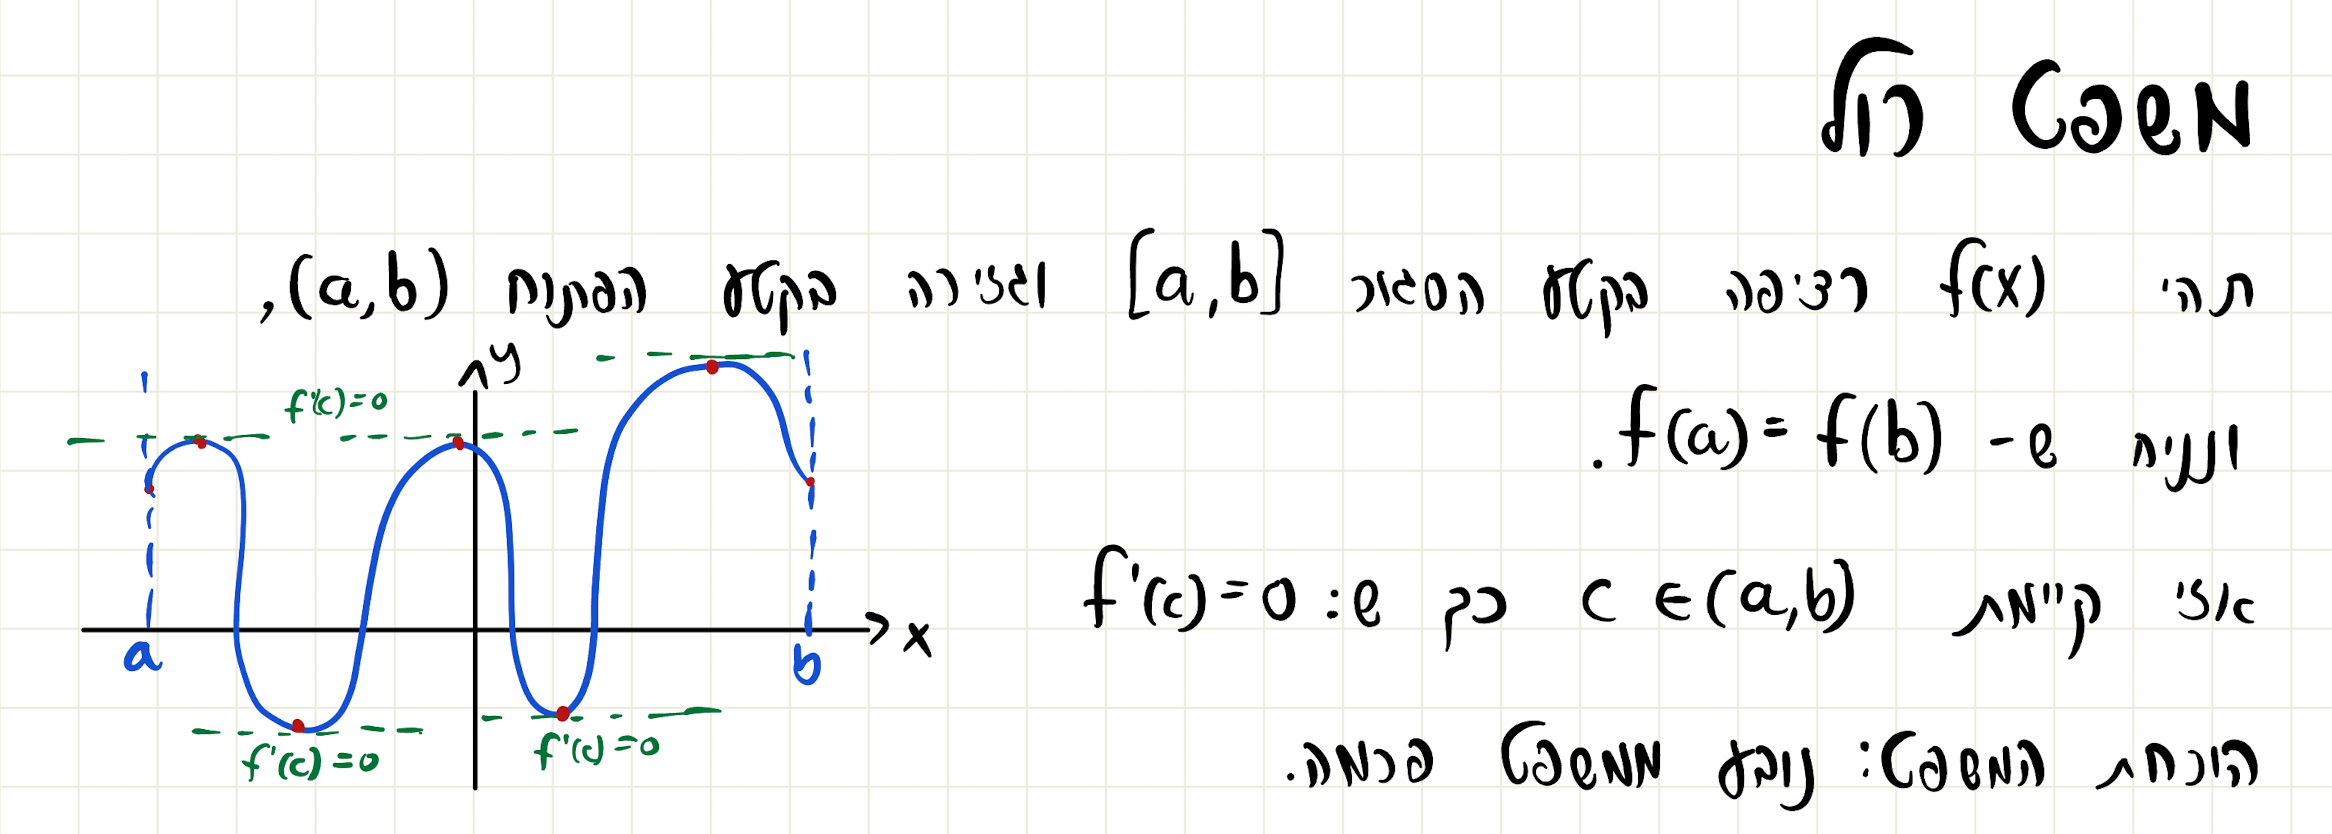 משפט רול
תהי f(x) רציפה בקטע הסגור [a,b] וגזירה בקטע הפתוח (a,b),
ונניח ש- f(a) = f(b).
אזי קיימת c ∈ (a,b) כך ש: f'(c) = 0
הוכחת המשפט: נובע ממשפט פרמה.
y
f'(c)=0
x
a
b
f'(c)=0
f'(c)=0